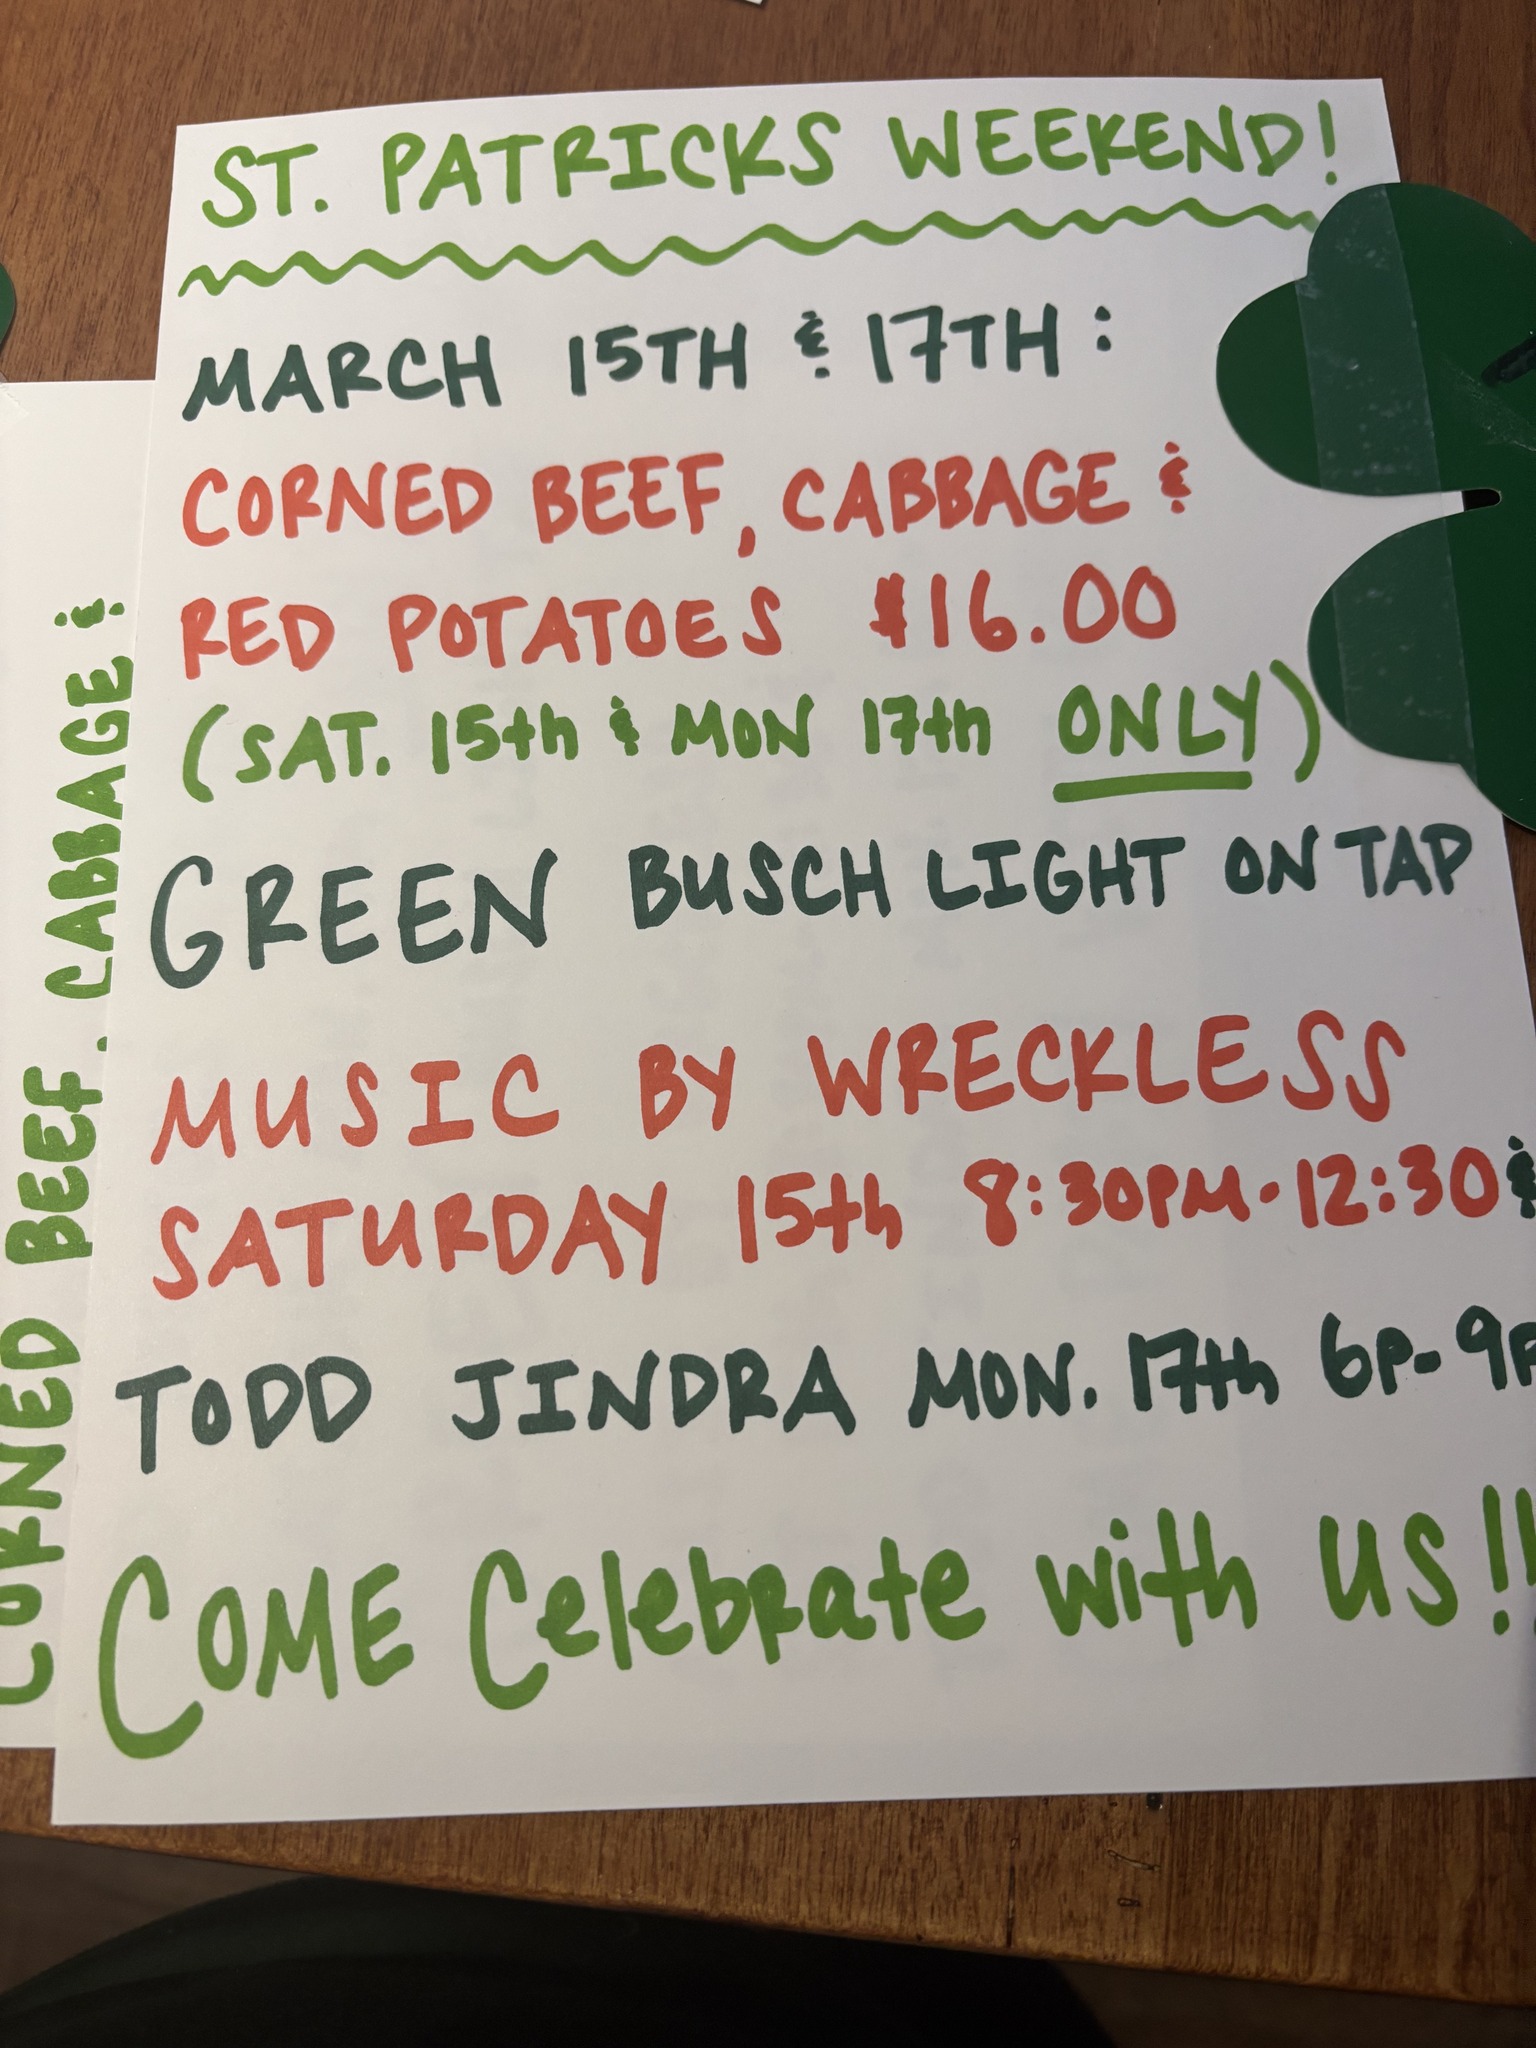 ST. PATRICKS WEEKEND!
MARCH 15TH & 17TH:
CORNED BEEF, CABBAGE &
RED POTATOES $16.00
(SAT. 15th & MON 17th ONLY)
GREEN BUSCH LIGHT ON TAP
MUSIC BY WRECKLESS
SATURDAY 15th 8:30PM-12:30 &
TODD JINDRA MON. 17th 6P-9P
COME Celebrate with US!!
CORNED BEEF, CABBAGE &